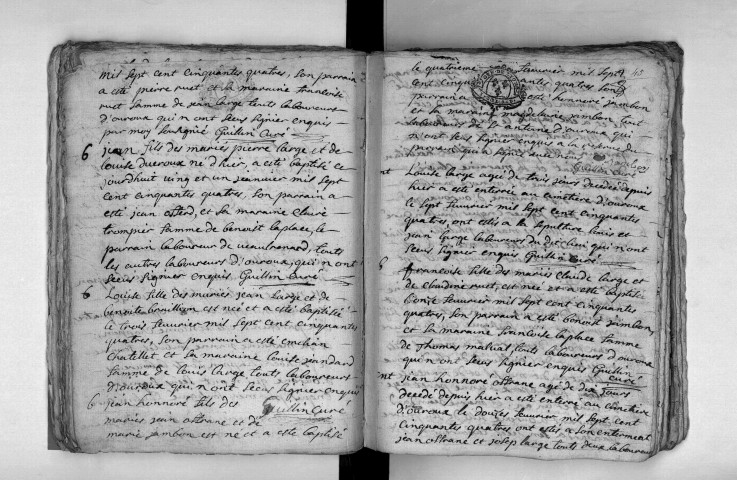 mil sept cent cinquantes quatres, son parrain
a esté pierre ruet et la maraine francoise
ruet famme de jean large touts laboureurs
d'ouroux qui n'ont seus signier enquis
par moy soussigné Guillin Curé
6 jean fils des mariés pierre large et de
Louise ducroux né d'hier, a esté baptisé ce
jourdhuit vingt et un jeanvier mil sept
cent cinquantes quatres, son parrain a
esté jean, et sa maraine Claire
trompier famme de benoit laplace, le
parrain laboureur de veaulrenard, touts
les autres laboureurs d'ouroux, qui n'ont
seeus signier enquis Guillin Curé
6 Louise fille des mariés jean large et de
benoite est née et a esté baptisé
le trois feuvrier mil sept cent cinquantes
quatres, son parrain a esté
Chatellet, et sa maraine Louise jeandard
famme de Louis large touts laboureurs
d'ouroux qui n'ont seeus signier enquis
6 jean honnoré fils des Guillin Curé
mariés jean et de
marie jambon est né et a esté baptisé
le quatrieme feuvrier mil sept
cent cinquantes quatres son
parrain a esté honnoré jambon
et sa maraine magdelaine jambon tout
laboureurs de st antoine d'ouroux qui
n'ont seus signier enquis a la reserve du
parrain qui a signé avec nous
Guillin Curé
nt Louise large agée de trois jours decedée depuis
hier a esté enterrée au cimetiere d'ouroux
le sept feuvrier mil sept cent cinquantes
quatres, ont estés a sa sepulture Louis et
jean large laboureurs du dit lieu qui n'ont
seeus signier enquis Guillin Curé
6 francoise fille des mariés Claude large et
de Claudine ruet, est née et a esté baptisé
l'onze feuvrier mil sept cent cinquantes
quatres, son parrain a esté benoit jambon,
et sa maraine francoise laplace famme
de thomas touts laboureurs d'ouroux
qui n'ont seeus signier enquis Guillin
Curé
nt jean honnore agé de dix jours
decedé depuis hier a esté enterré au cimetiere
d'ouroux le douzes feuvrier mil sept cent
cinquantes quatres ont estés a son enterrement
jean et large touts deux laboureurs